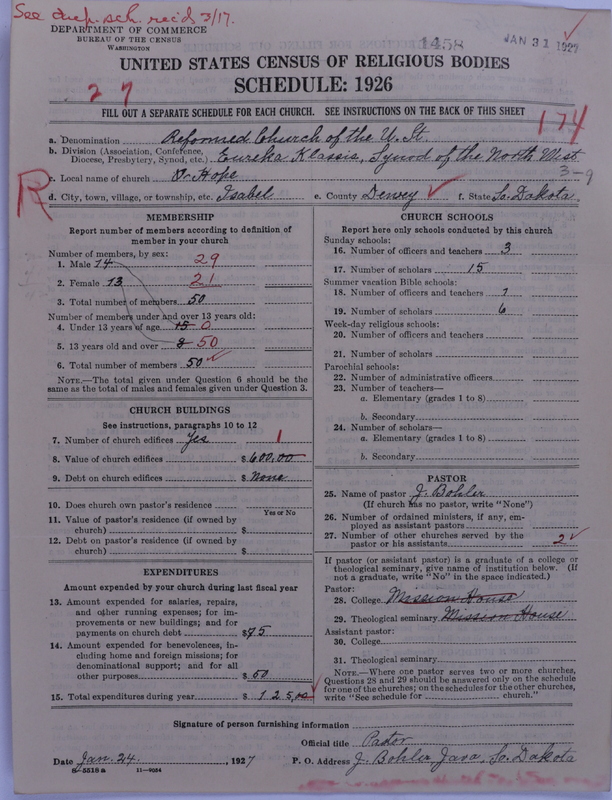 See dup. sch. rec'd 3/17.
DEPARTMENT OF COMMERCE
BUREAU OF THE CENSUS
WASHINGTON
1458
JAN 31 1927
UNITED STATES CENSUS OF RELIGIOUS BODIES
SCHEDULE: 1926
27
FILL OUT A SEPARATE SCHEDULE FOR EACH CHURCH. SEE INSTRUCTIONS ON THE BACK OF THIS SHEET
174
a. Denomination Reformed Church of the U. St.
b. Division (Association, Conference, Diocese, Presbytery, Synod, etc.) Eureka Klassis, Synod of the North West
3-9
R
c. Local name of church Hope
d. City, town, village, or township, etc. Isabel e. County Dewey f. State So. Dakota
MEMBERSHIP
Report number of members according to definition of
member in your church
Number of members, by sex:
1. Male 14 29
2. Female 13 21
3. Total number of members 50
Number of members under and over 13 years old:
4. Under 13 years of age 15 0
5. 13 years old and over 8 50
6. Total number of members 50
NOTE.—The total given under Question 6 should be the
same as the total of males and females given under Question 3.
CHURCH BUILDINGS
See instructions, paragraphs 10 to 12
7. Number of church edifices Yes 1
8. Value of church edifices $ 600.00
9. Debt on church edifices $ None
10. Does church own pastor's residence
Yes or No
11. Value of pastor's residence (if owned by
church) $
12. Debt on pastor's residence (if owned by
church) $
EXPENDITURES
Amount expended by your church during last fiscal year
13. Amount expended for salaries, repairs,
and other running expenses; for im-
provements or new buildings; and for
payments on church debt $
14. Amount expended for benevolences, in-
cluding home and foreign missions; for
denominational support; and for all
other purposes $ 50
15. Total expenditures during year $ 125,00
CHURCH SCHOOLS
Report here only schools conducted by this church
Sunday schools:
16. Number of officers and teachers 3
17. Number of scholars 15
Summer vacation Bible schools:
18. Number of officers and teachers 1
19. Number of scholars 6
Week-day religious schools:
20. Number of officers and teachers
21. Number of scholars
Parochial schools:
22. Number of administrative officers
23. Number of teachers—
a. Elementary (grades 1 to 8)
b. Secondary
24. Number of scholars—
a. Elementary (grades 1 to 8)
b. Secondary
PASTOR
25. Name of pastor J. Bohler
(If church has no pastor, write "None")
26. Number of ordained ministers, if any, em-
ployed as assistant pastors
27. Number of other churches served by the
pastor or his assistants 2
If pastor (or assistant pastor) is a graduate of a college or
theological seminary, give name of institution below. (If
not a graduate, write "No" in the space indicated.)
Pastor:
28. College Mission House
29. Theological seminary Mission House
Assistant pastor:
30. College
31. Theological seminary
NOTE.—Where one pastor serves two or more churches,
Questions 28 and 29 should be answered only on the schedule
for one of the churches; on the schedules for the other churches,
write "See schedule for church."
Signature of person furnishing information
Official title Pastor
Date Jan. 24, 1927 P. O. Address J. Bohler Java, So. Dakota
8-5518 a 11—9034